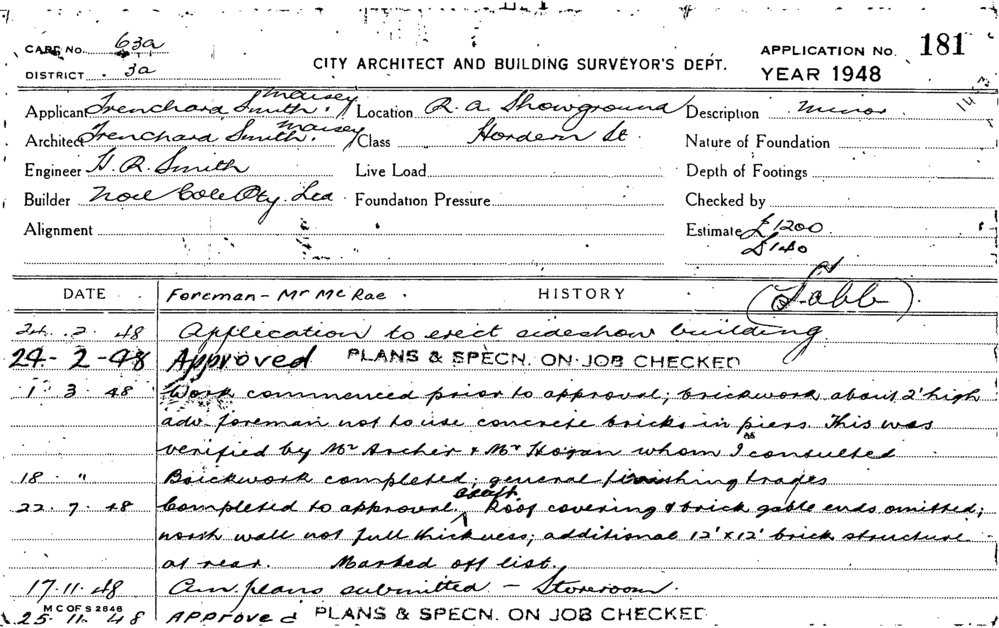 CARD No. 63a
DISTRICT 3a
CITY ARCHITECT AND BUILDING SURVEYOR'S DEPT.
APPLICATION No. 181
YEAR 1948
Applicant Trenchard Smith & Maisey Location R. A. Showground Description Minor
Architect Trenchard Smith & Maisey Class Hordern St Nature of Foundation
Engineer H. R. Smith Live Load Depth of Footings
Builder Noel Cole Pty. Ltd Foundation Pressure Checked by
Alignment Estimate £1200
£140
DATE Foreman - Mr McRae. HISTORY
24. 2. 48 Application to erect sideshow building
24-2-48 Approved PLANS & SPECN. ON JOB CHECKED
1 3 48 Work commenced prior to approval; brickwork about 2' high
adv. foreman not to use concrete bricks in piers. This was
verified by Mr Archer & Mr Hogan whom I consulted
18 " Brickwork completed; general finishing trades
22. 7. 48 Completed to approval except Roof covering & brick gable ends omitted;
north wall not full thickness; additional 12' x 12' brick structure
at rear. Marked off list.
17.11.48 Am. plans submitted - Storeroom.
M C OF S 2848
25. 11. 48 APPROVED PLANS & SPECN. ON JOB CHECKED